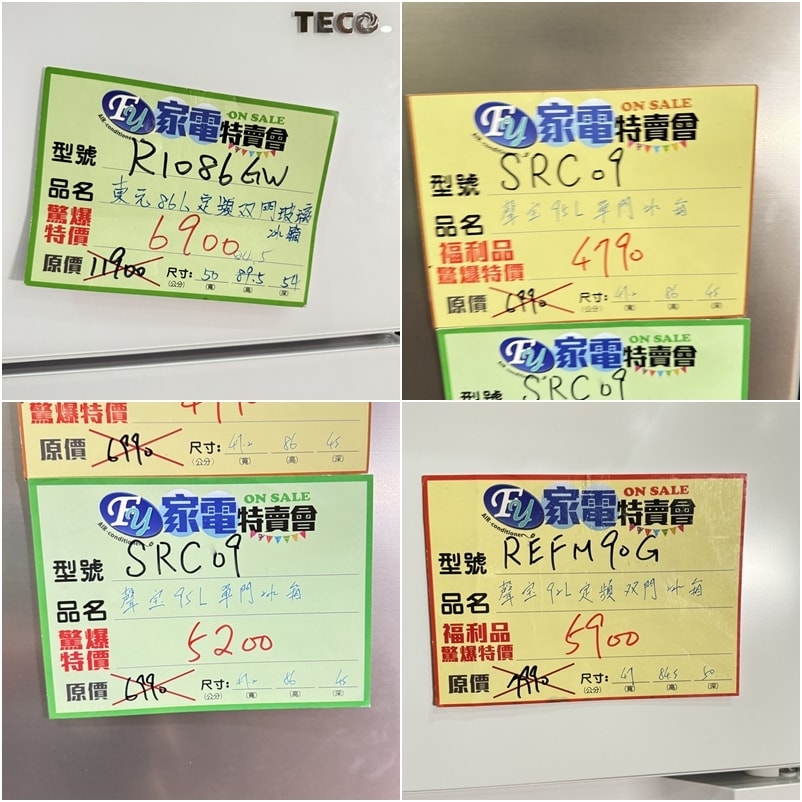 TECO
Fy 家電特賣會 ON SALE
AIR-conditioner
型號 R1086GW
品名 東元86L定頻双門玻璃
冰箱
驚爆特價 6900
原價 11900 尺寸: 50 89.5 54
(公分) (寬) (高) (深)
Fy 家電特賣會 ON SALE
AIR-conditioner
型號 SRC09
品名 聲宝95L單門冰箱
福利品
驚爆特價 4790
原價 6990 尺寸: 47.2 86 45
(公分) (寬) (高) (深)
Fy 家電特賣會 ON SALE
型號 SRC09
驚爆特價
原價 6990 尺寸: 47.2 86 45
(公分) (寬) (高) (深)
Fy 家電特賣會 ON SALE
AIR-conditioner
型號 SRC09
品名 聲宝95L單門冰箱
驚爆特價 5200
原價 6990 尺寸: 47.2 86 45
(公分) (寬) (高) (深)
Fy 家電特賣會 ON SALE
AIR-conditioner
型號 REFM90G
品名 聲宝92L定頻双門冰箱
福利品
驚爆特價 5900
原價 7990 尺寸: 47 84.5 50
(公分) (寬) (高) (深)